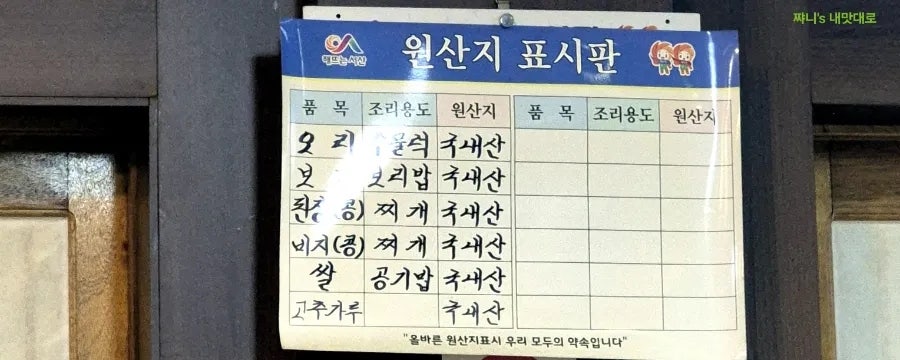 쨔니's 내맛대로
해뜨는 서산
원산지 표시판
품 목 조리용도 원산지 품 목 조리용도 원산지
오 리 국내산
보리밥 국내산
된장(콩) 찌 개 국내산
비지(콩) 찌 개 국내산
쌀 공기밥 국내산
고추가루 국내산
"올바른 원산지표시 우리 모두의 약속입니다"